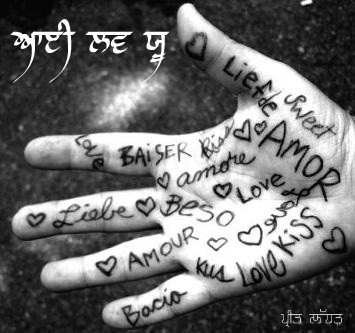 ਆਈ ਲਵ ਯੂ
Liefde
sweet
Love
BAiSER
Kiss
AMOR
amore
Love
Liebe
BESO
Kiss
AMOUR
Kus
Love
Bacio